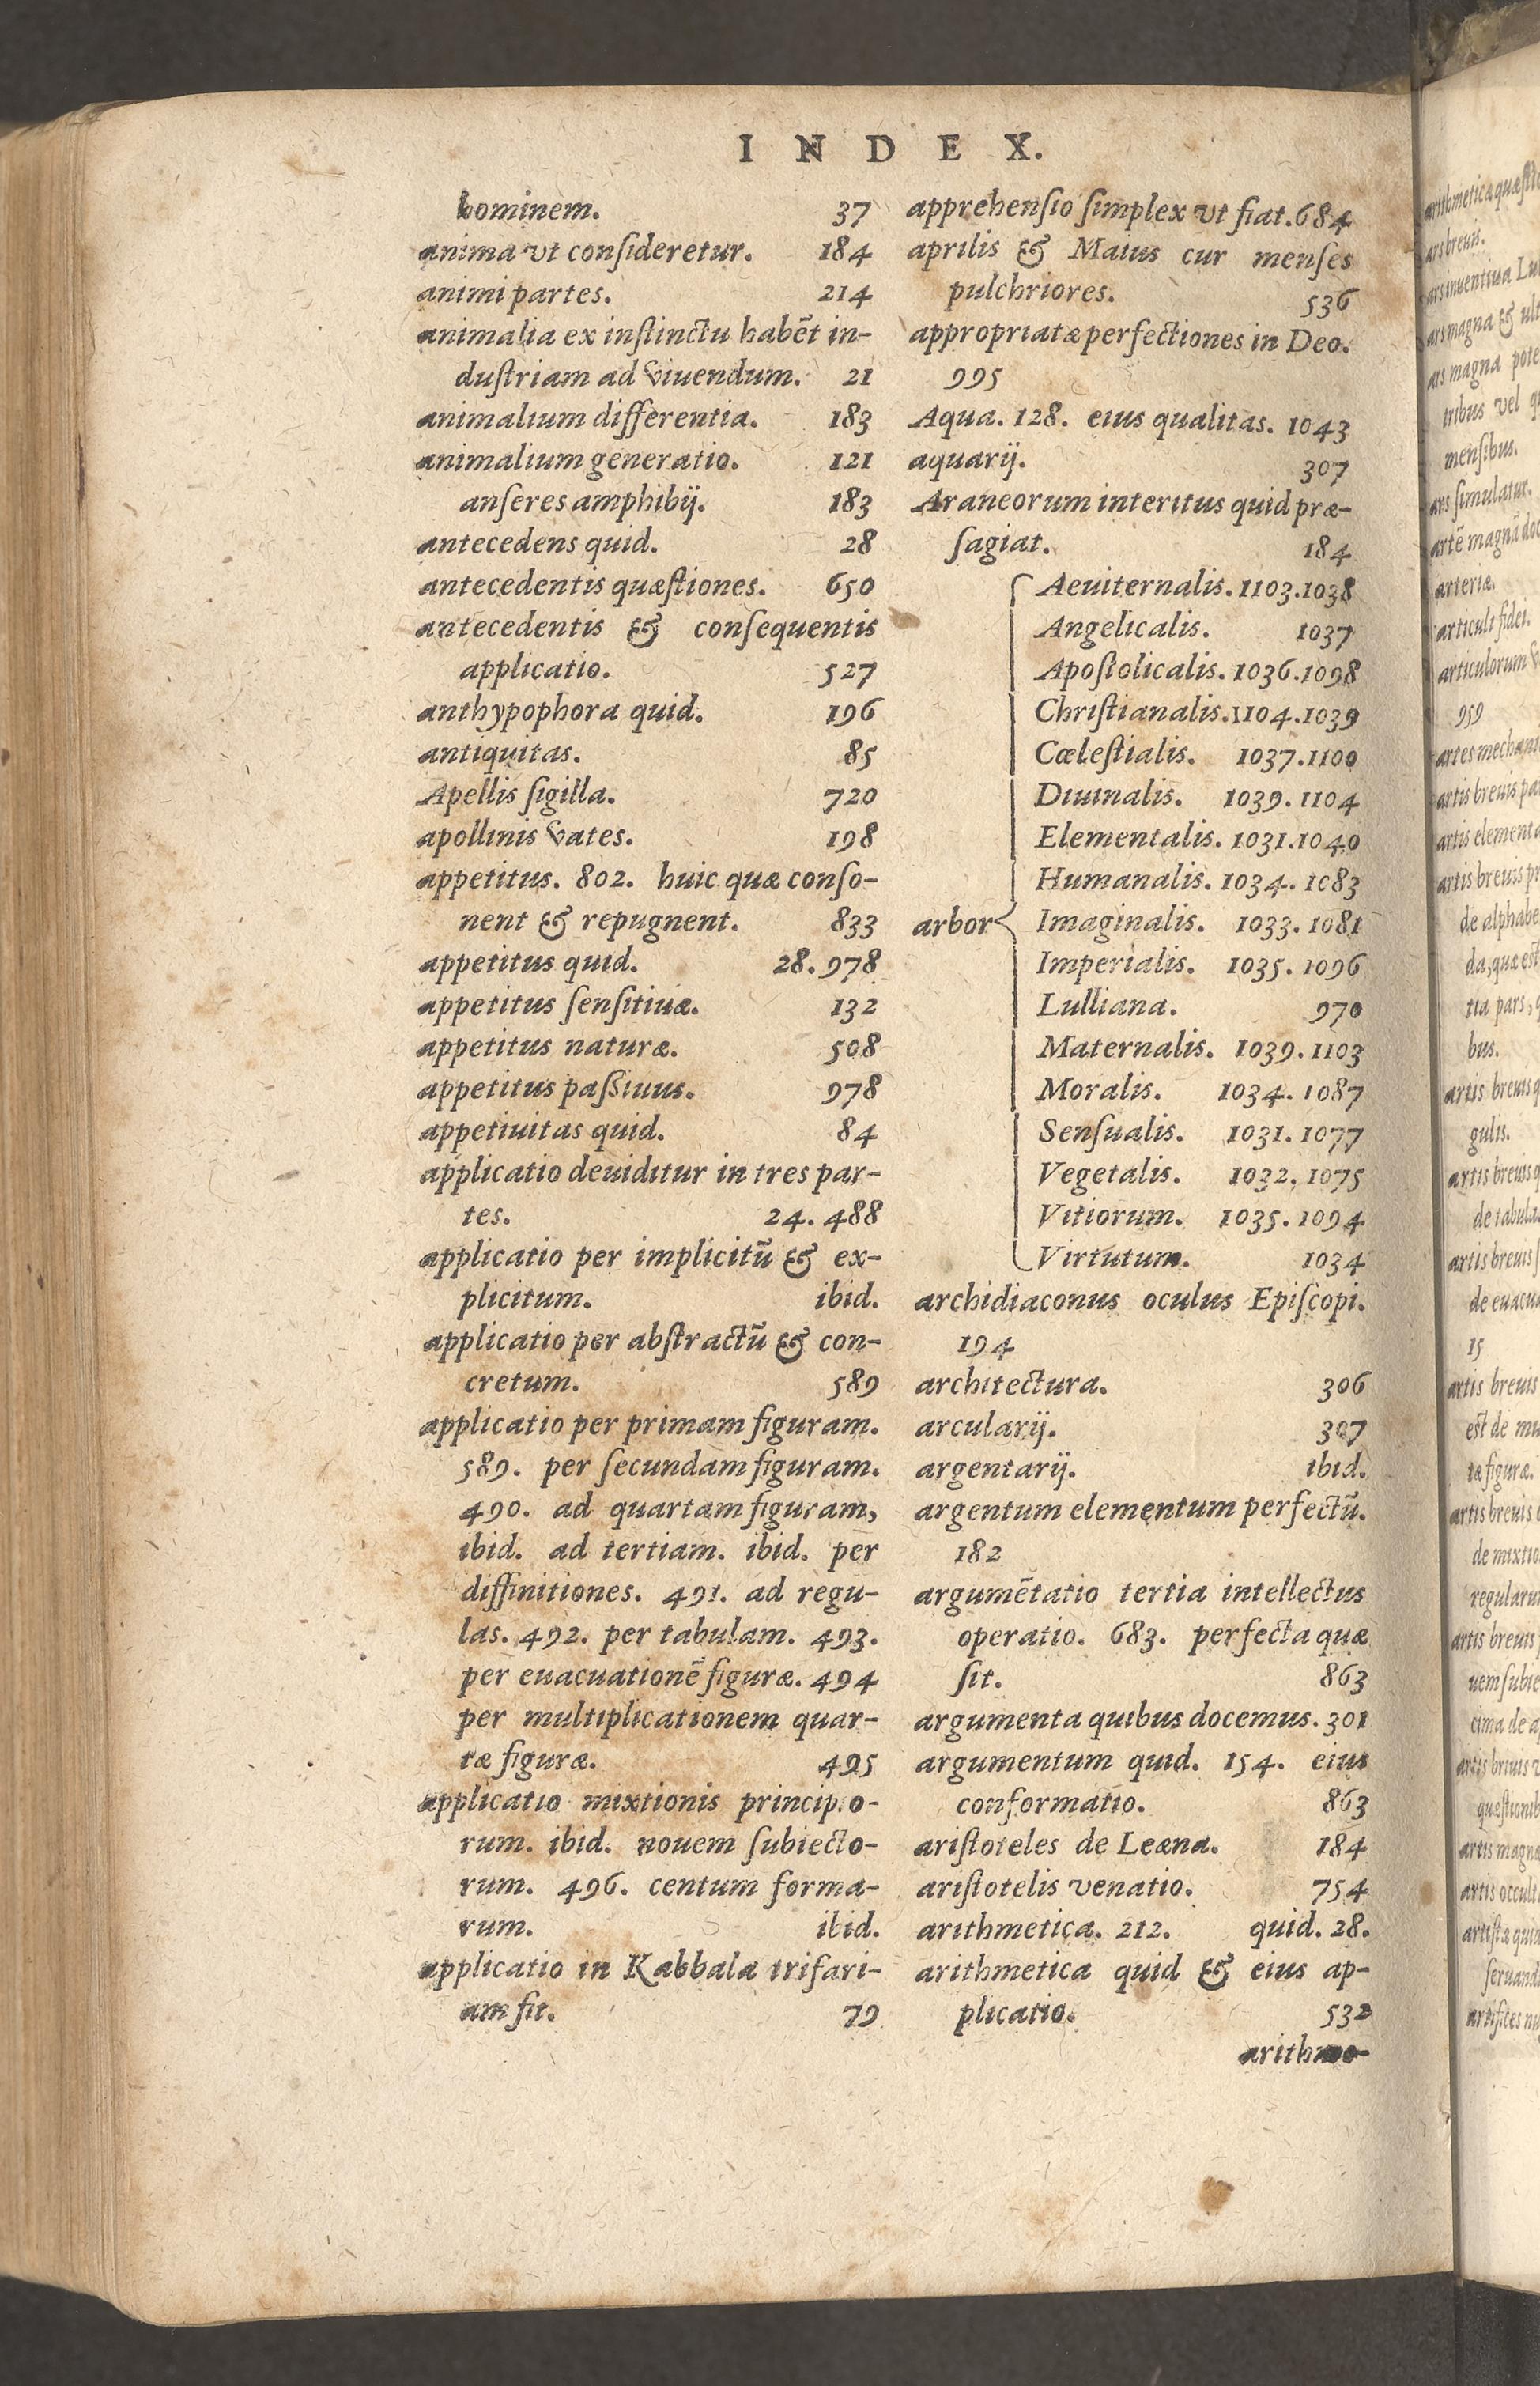 INDEX.
hominem. 37
anima vt conſideretur. 184
animi partes. 214
animalia ex inſtinctu habēt in-
duſtriam ad viuendum. 21
animalium differentia. 183
animalium generatio. 121
anſeres amphibij. 183
antecedens quid. 28
antecedentis quæſtiones. 650
antecedentis & conſequentis
applicatio. 527
anthypophora quid. 196
antiquitas. 85
Apellis ſigilla. 720
apollinis vates. 198
appetitus. 802. huic quæ conſo-
nent & repugnent. 833
appetitus quid. 28. 978
appetitus ſenſitiuæ. 132
appetitus naturæ. 508
appetitus paſsiuus. 978
appetiuitas quid. 84
applicatio deuiditur in tres par-
tes. 24. 488
applicatio per implicitū & ex-
plicitum. ibid.
applicatio per abſtractū & con-
cretum. 589
applicatio per primam figuram.
589. per ſecundam figuram.
490. ad quartam figuram,
ibid. ad tertiam. ibid. per
diffinitiones. 491. ad regu-
las. 492. per tabulam. 493.
per euacuationē figuræ. 494
per multiplicationem quar-
tæ figuræ. 495
applicatio mixtionis principio-
rum. ibid. nouem ſubiecto-
rum. 496. centum forma-
rum. ibid.
applicatio in Kabbala trifari-
am fit. 79
apprehenſio ſimplex vt fiat. 684
aprilis & Maius cur menſes
pulchriores. 536
appropriatæ perfectiones in Deo.
995
Aqua. 128. eius qualitas. 1043
aquarij. 307
Araneorum interitus quid præ-
ſagiat. 184
Aeuiternalis. 1103. 1038
Angelicalis. 1037
Apoſtolicalis. 1036. 1098
Chriſtianalis. 1104. 1039
Cœleſtialis. 1037. 1100
Diuinalis. 1039. 1104
Elementalis. 1031. 1040
Humanalis. 1034. 1083
arbor { Imaginalis. 1033. 1081
Imperialis. 1035. 1096
Lulliana. 970
Maternalis. 1039. 1103
Moralis. 1034. 1087
Senſualis. 1031. 1077
Vegetalis. 1032. 1075
Vitiorum. 1035. 1094
Virtutum. 1034
archidiaconus oculus Epiſcopi.
194
architectura. 306
arcularij. 307
argentarij. ibid.
argentum elementum perfectū.
182
argumētatio tertia intellectus
operatio. 683. perfecta quæ
ſit. 863
argumenta quibus docemus. 301
argumentum quid. 154. eius
conformatio. 863
ariſtoteles de Leæna. 184
ariſtotelis venatio. 754
arithmetica. 212. quid. 28.
arithmetica quid & eius ap-
plicatio. 532
arithme-
ars breuis.
mensibus.
ars ſimulatur.
arteriæ.
articuli fidei.
959
bus.
gulis.
15
tæ figuræ.